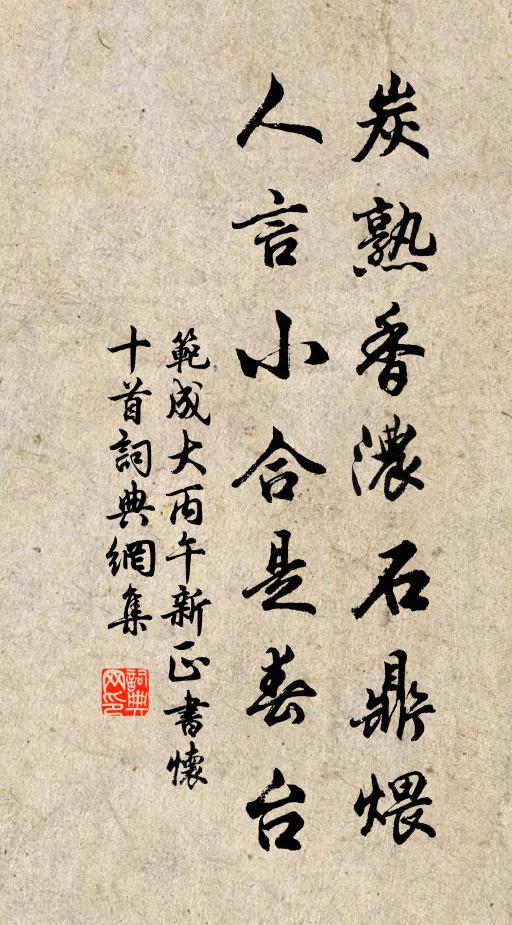 炭熟香濃石鼎煨
人言小合是春台
範成大丙午新正書懷
十首詞典網集
詞典
网印